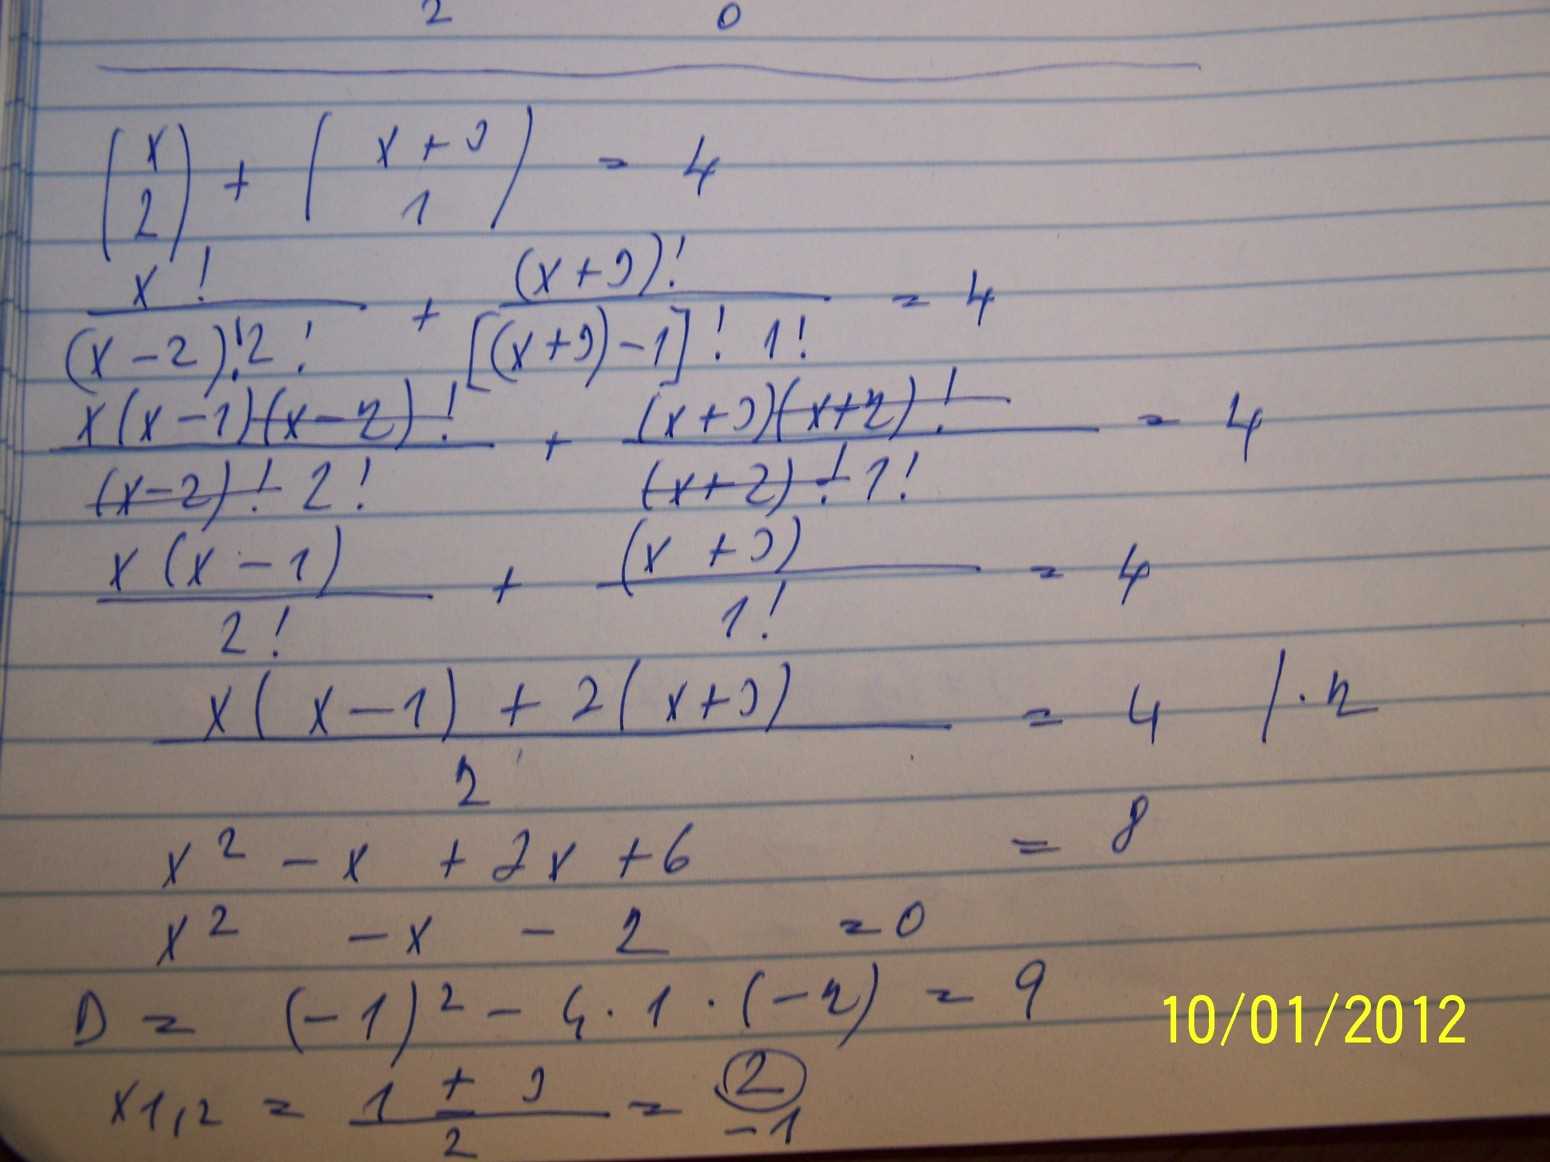 2 0
(x 2) + (x+3 1) = 4
x! / (x-2)!2! + (x+3)! / [(x+3)-1]! 1! = 4
x(x-1)(x-2)! / (x-2)! 2! + (x+3)(x+2)! / (x+2)! 1! = 4
x(x-1) / 2! + (x+3) / 1! = 4
x(x-1) + 2(x+3) / 2 = 4 /·2
x² - x + 2x + 6 = 8
x² - x - 2 = 0
D = (-1)² - 4·1·(-2) = 9
x1,2 = 1 ± 3 / 2 = 2 -1
10/01/2012